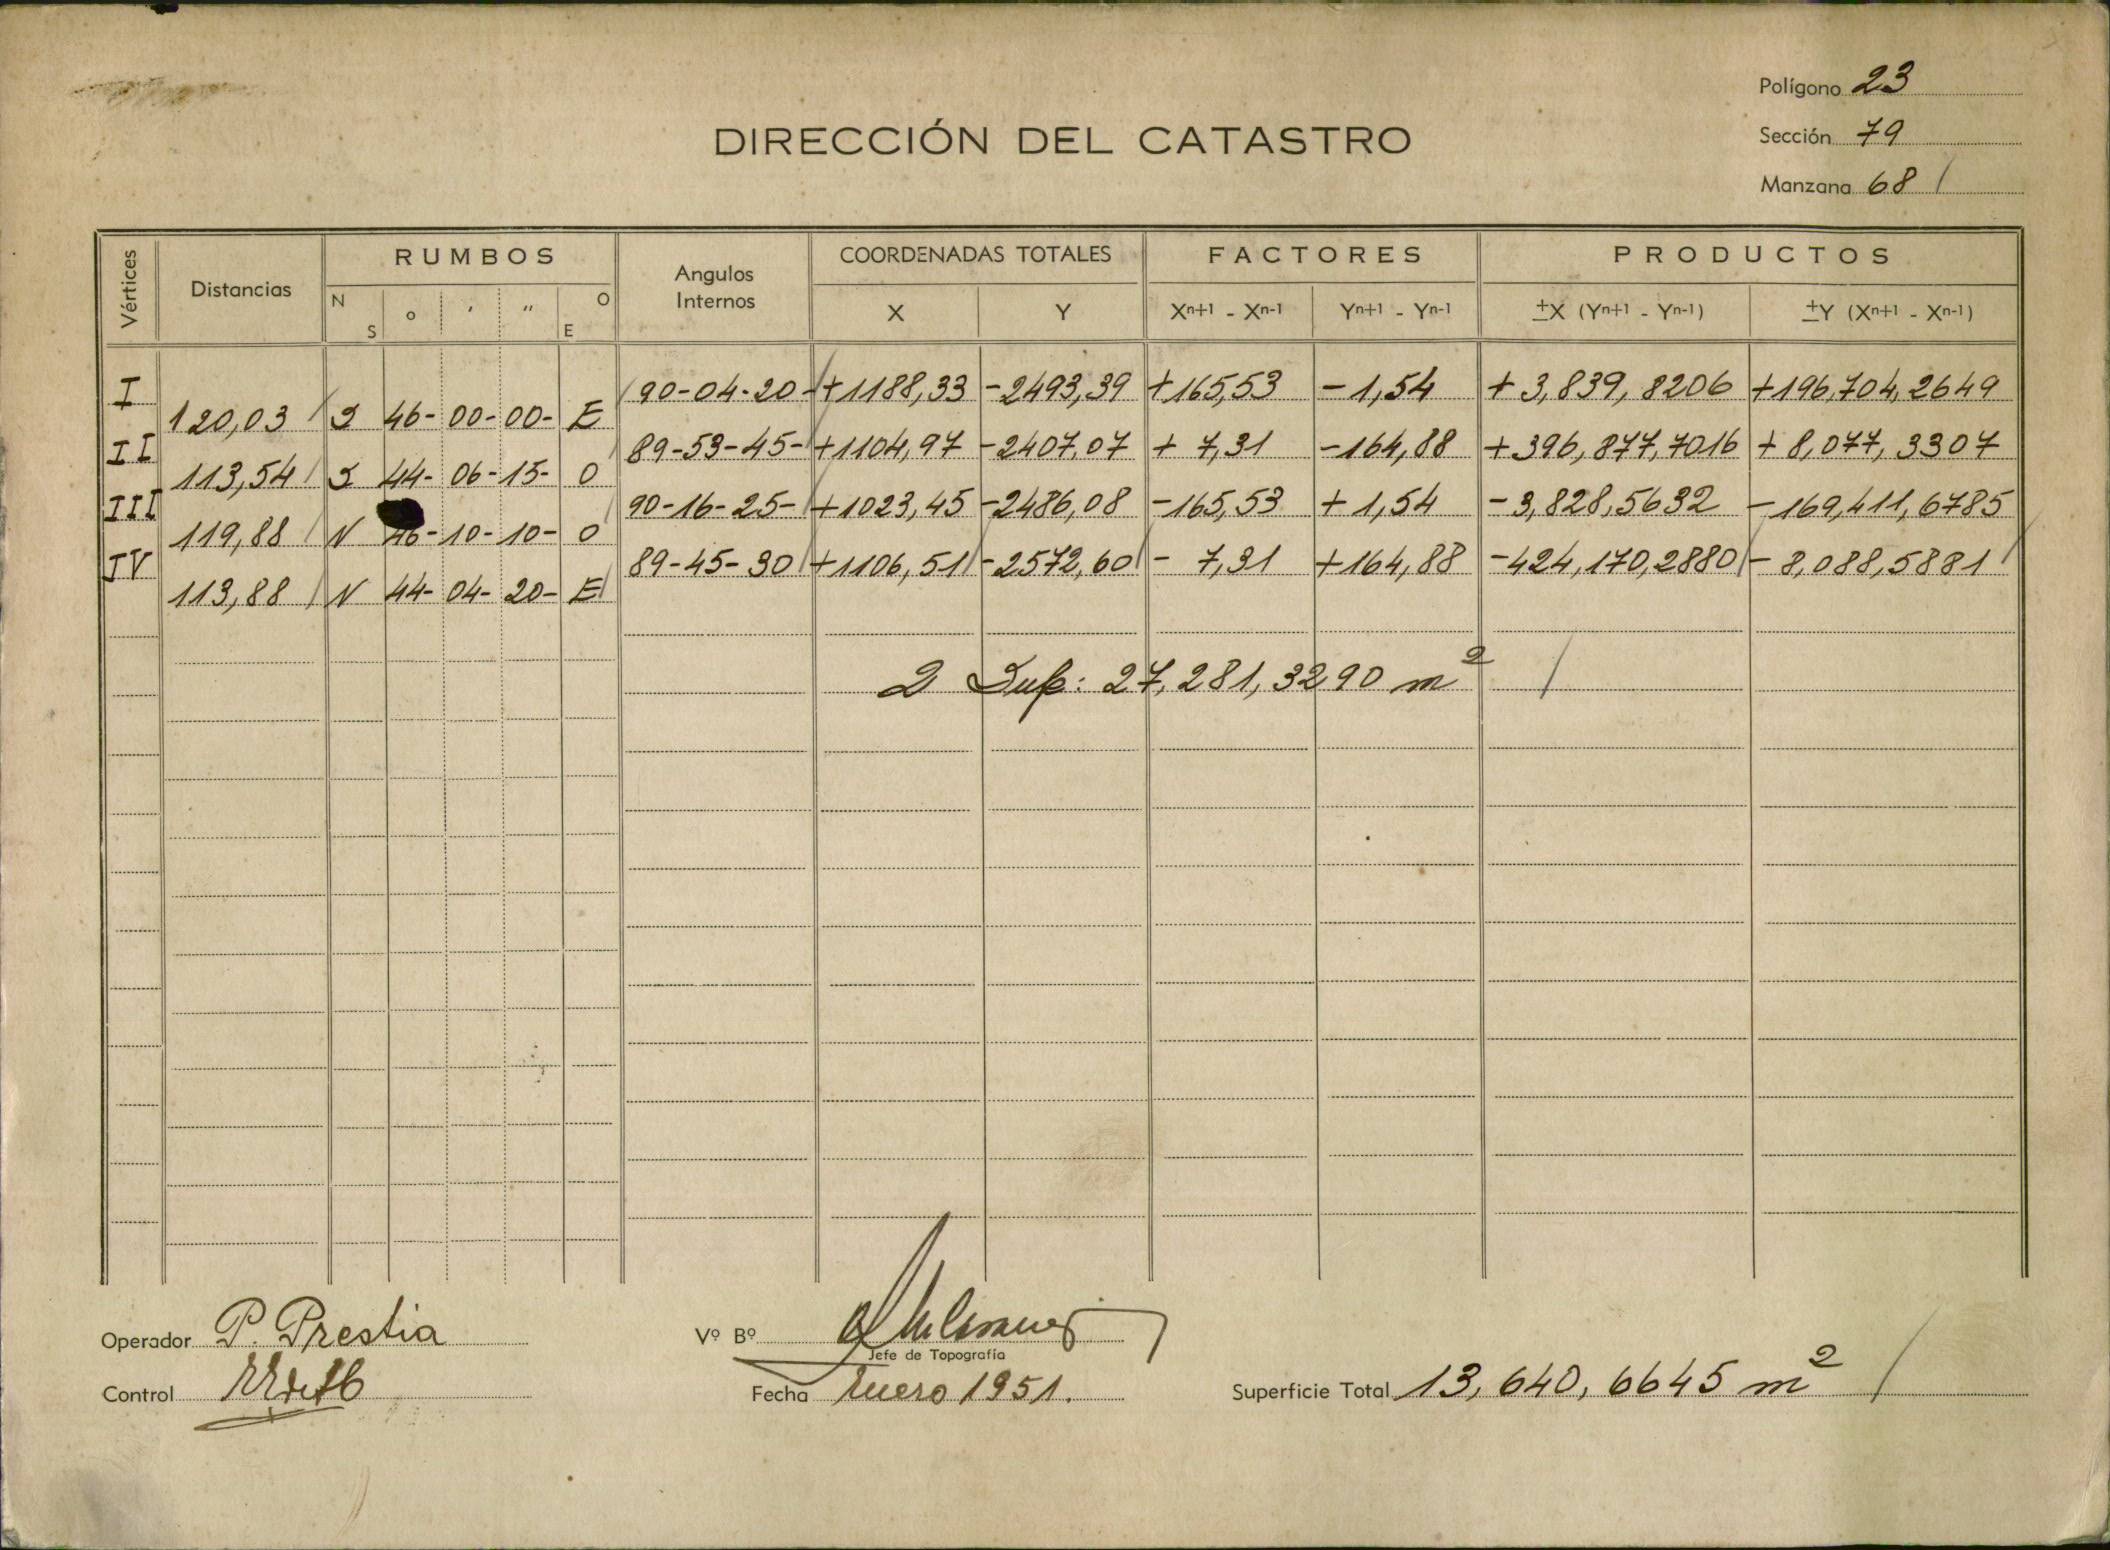 Polígono 23
DIRECCIÓN DEL CATASTRO
Sección 79
Manzana 68
Vértices Distancias RUMBOS Angulos Internos COORDENADAS TOTALES FACTORES PRODUCTOS
N S o ' '' O E X Y Xn+1 - Xn-1 Yn+1 - Yn-1 ±X (Yn+1 - Yn-1) ±Y (Xn+1 - Xn-1)
I 90-04-20- +1188,33 -2493,39 +165,53 -1,54 +3,839,8206 +196,704,2649
120,03 S 46- 00- 00- E
II 89-53-45- +1104,97 -2407,07 + 7,31 -164,88 +396,877,7016 + 8,077,3307
113,54 S 44- 06- 15- O
III 90-16-25- +1023,45 -2486,08 -165,53 + 1,54 -3,828,5632 -169,411,6785
119,88 N 46- 10- 10- O
IV 89-45-30 +1106,51 -2572,60 - 7,31 +164,88 -424,170,2880 - 8,088,5881
113,88 N 44- 04- 20- E
2 Sup: 27,281,3290 m2
Operador P. Prestia
Vº Bº
Jefe de Topografía
Control
Fecha Enero 1951.
Superficie Total 13,640,6645 m2